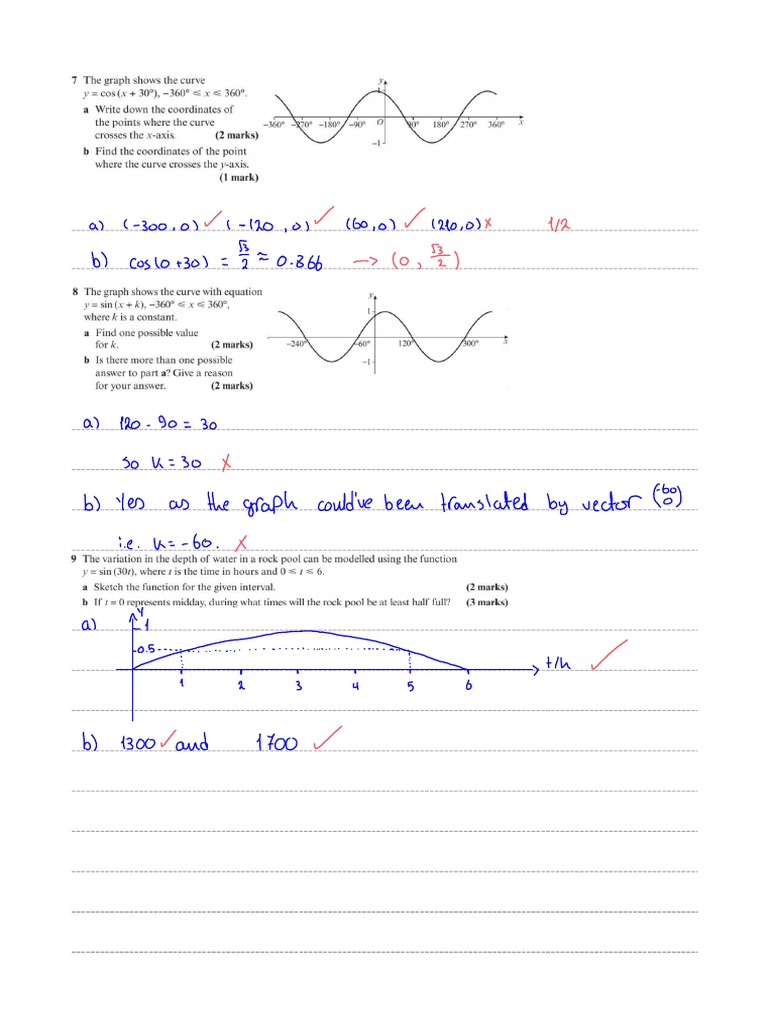 7 The graph shows the curve
y = cos (x + 30°), −360° ⩽ x ⩽ 360°.
a Write down the coordinates of
the points where the curve
crosses the x-axis. (2 marks)
b Find the coordinates of the point
where the curve crosses the y-axis.
(1 mark)
y
1
−360° −270° −180° −90° O 90° 180° 270° 360° x
−1
a) (-300,0) ✓ (-120,0) ✓ (60,0) ✓ (210,0) x 1/2
b) cos(0+30) = √3/2 ≈ 0.866 → (0, √3/2)
8 The graph shows the curve with equation
y = sin (x + k), −360° ⩽ x ⩽ 360°,
where k is a constant.
a Find one possible value
for k. (2 marks)
b Is there more than one possible
answer to part a? Give a reason
for your answer. (2 marks)
y
1
−240° −60° 120° 300° x
−1
a) 120 - 90 = 30
so k = 30 x
b) Yes as the graph could've been translated by vector (-60 0)
i.e. k = -60. x
9 The variation in the depth of water in a rock pool can be modelled using the function
y = sin (30t), where t is the time in hours and 0 ⩽ t ⩽ 6.
a Sketch the function for the given interval. (2 marks)
b If t = 0 represents midday, during what times will the rock pool be at least half full? (3 marks)
a) y
1
0.5
t/h ✓
1 2 3 4 5 6
b) 1300 ✓ and 1700 ✓